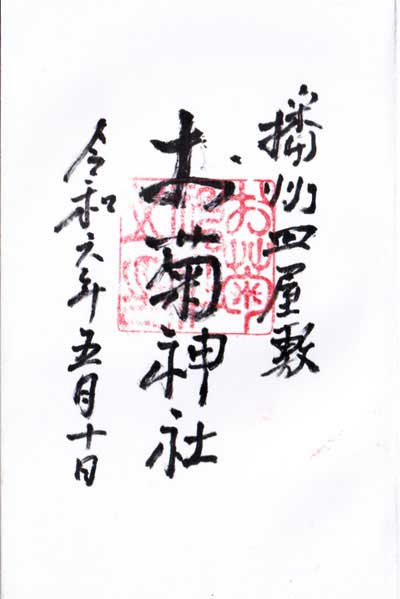 播州皿屋敷
お菊神社
令和六年五月十日